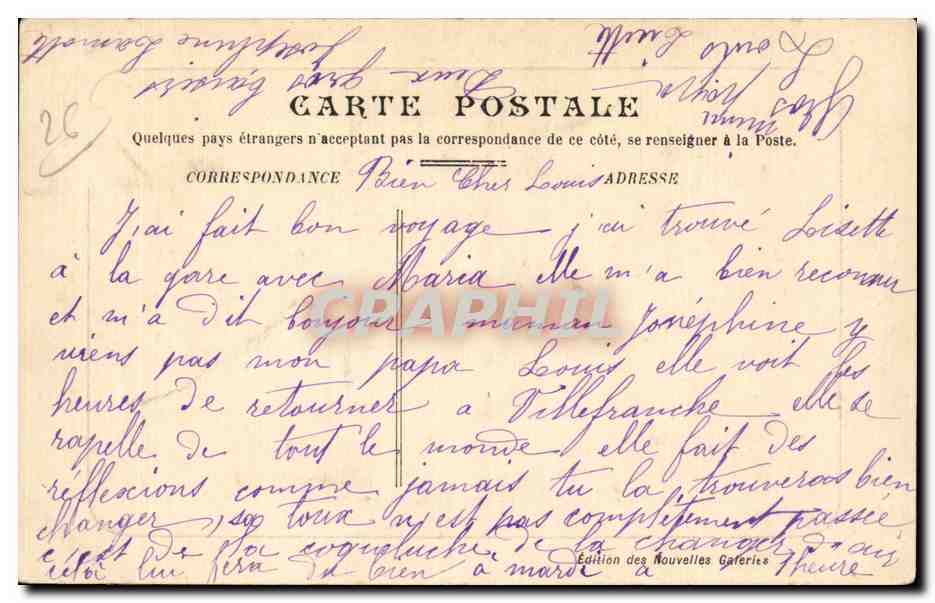 26
CARTE POSTALE
Quelques pays étrangers n'acceptant pas la correspondance de ce côté, se renseigner à la Poste.
CORRESPONDANCE Bien Cher Louis ADRESSE
J'ai fait bon voyage j'ai trouvé Lisette
à la gare avec Maria elle m'a bien reconnu
et m'a dit bonjour muman Joséphine y
viens pas mon papa Louis elle voit les
heures de retourner a Villefranche elle se
rapelle de tout le monde elle fait des
réflexions comme jamais tu la trouveras bien
changer, sa toux n'est pas complètement passée
c'est de la coqueluche de la changer d'air
cela lui fera du bien à mardi a heure
Edition des Nouvelles Galeries
Deux gros baisers
Joséphine
Gros
CRAPHIL